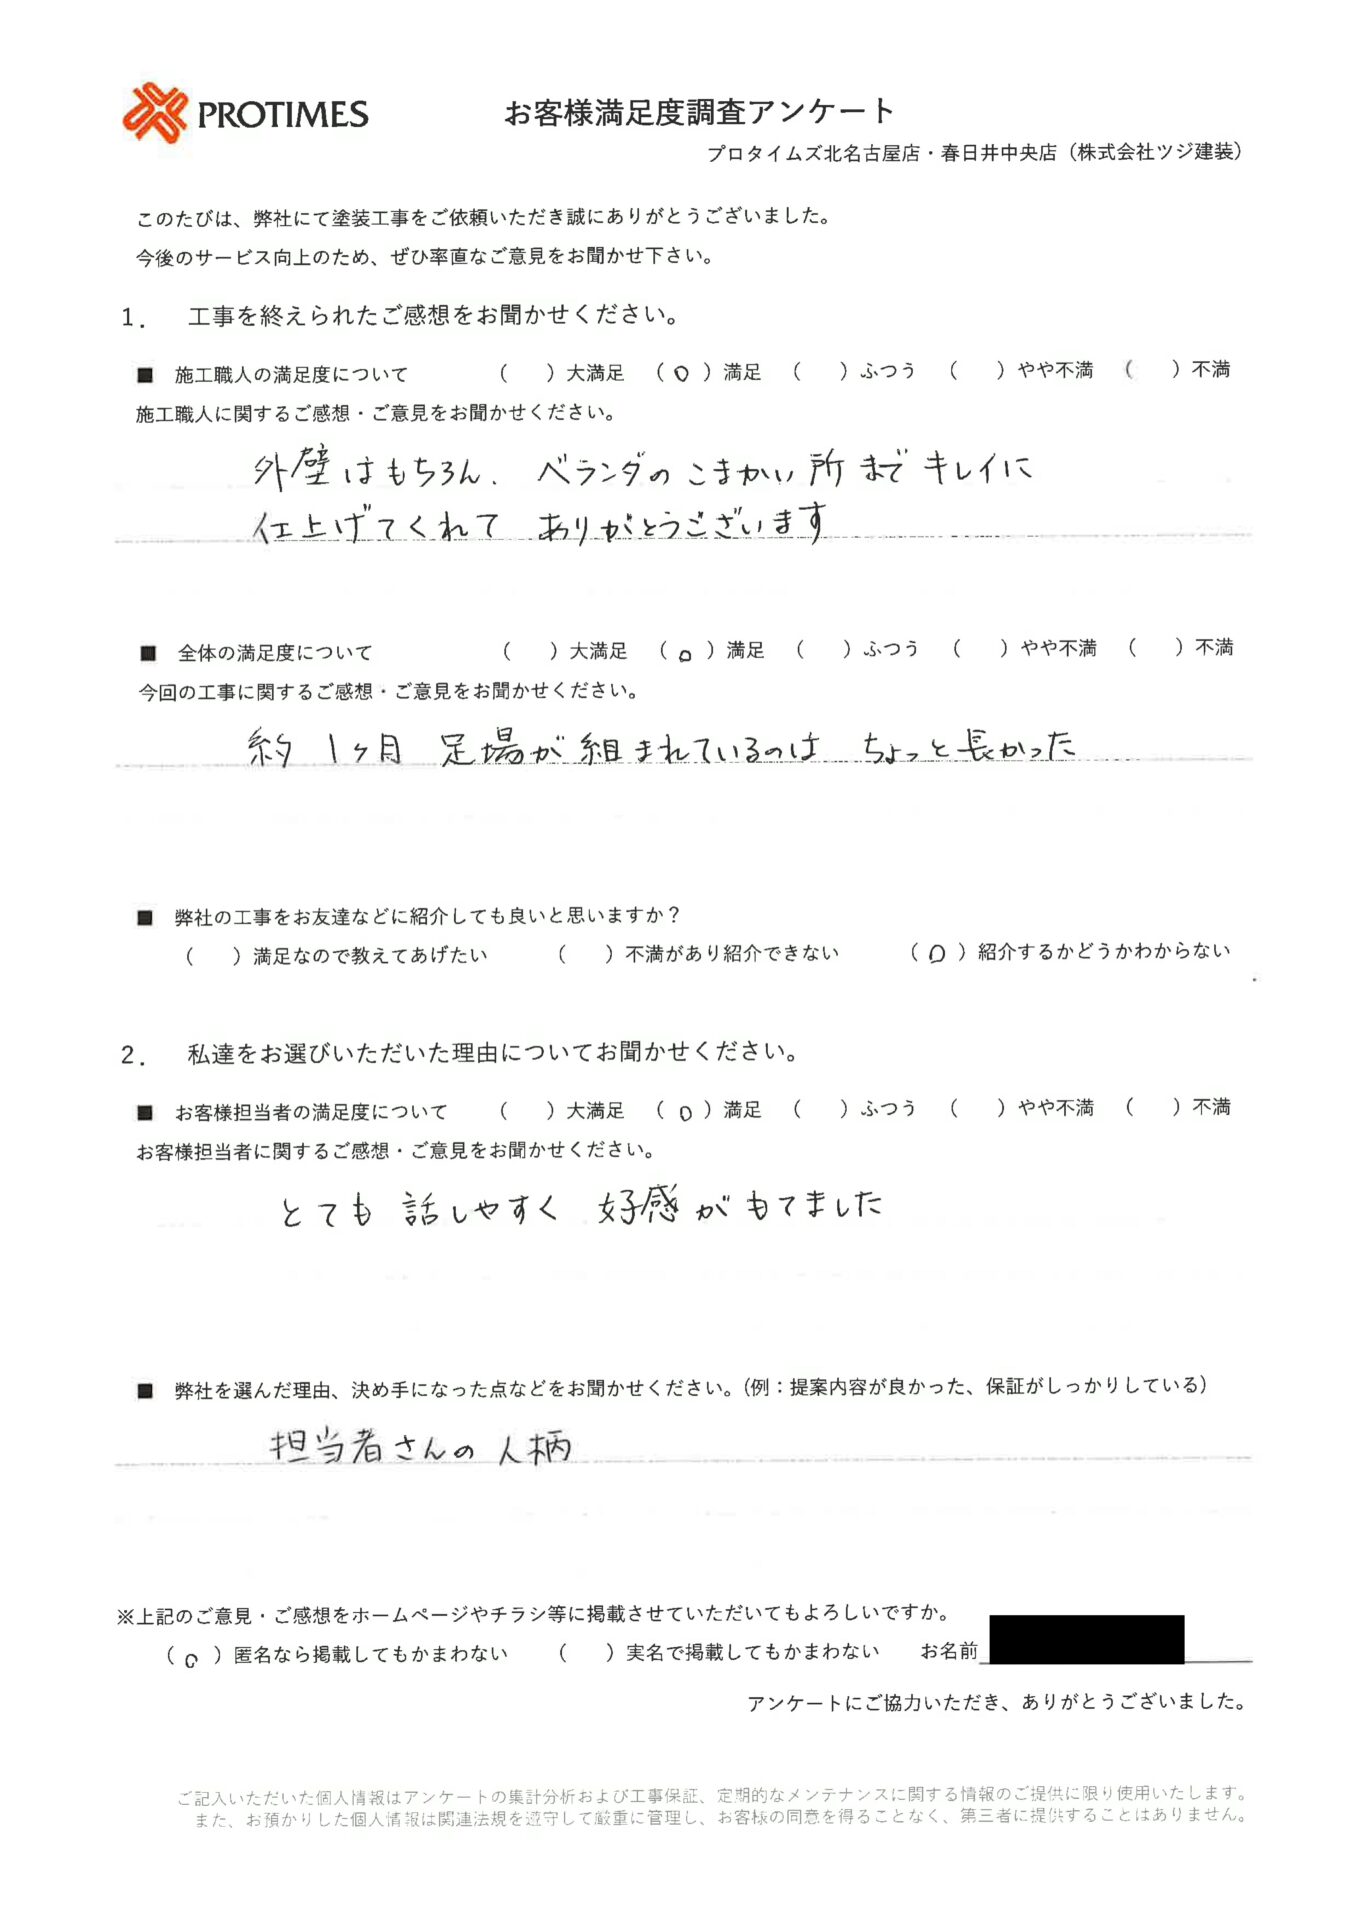 PROTIMES お客様満足度調査アンケート
プロタイムズ北名古屋店・春日井中央店（株式会社ツジ建装）
このたびは、弊社にて塗装工事をご依頼いただき誠にありがとうございました。
今後のサービス向上のため、ぜひ率直なご意見をお聞かせ下さい。
1． 工事を終えられたご感想をお聞かせください。
■ 施工職人の満足度について （ ）大満足 （○）満足 （ ）ふつう （ ）やや不満 （ ）不満
施工職人に関するご感想・ご意見をお聞かせください。
外壁はもちろん、ベランダのこまかい所までキレイに
仕上げてくれて ありがとうございます
■ 全体の満足度について （ ）大満足 （○）満足 （ ）ふつう （ ）やや不満 （ ）不満
今回の工事に関するご感想・ご意見をお聞かせください。
約1ヶ月 足場が組まれているのは ちょっと長かった
■ 弊社の工事をお友達などに紹介しても良いと思いますか？
（ ）満足なので教えてあげたい （ ）不満があり紹介できない （○）紹介するかどうかわからない
2． 私達をお選びいただいた理由についてお聞かせください。
■ お客様担当者の満足度について （ ）大満足 （○）満足 （ ）ふつう （ ）やや不満 （ ）不満
お客様担当者に関するご感想・ご意見をお聞かせください。
とても 話しやすく 好感がもてました
■ 弊社を選んだ理由、決め手になった点などをお聞かせください。（例：提案内容が良かった、保証がしっかりしている）
担当者さんの人柄
※上記のご意見・ご感想をホームページやチラシ等に掲載させていただいてもよろしいですか。
（○）匿名なら掲載してもかまわない （ ）実名で掲載してもかまわない お名前
アンケートにご協力いただき、ありがとうございました。
ご記入いただいた個人情報はアンケートの集計分析および工事保証、定期的なメンテナンスに関する情報のご提供に限り使用いたします。
また、お預かりした個人情報は関連法規を遵守して厳重に管理し、お客様の同意を得ることなく、第三者に提供することはありません。